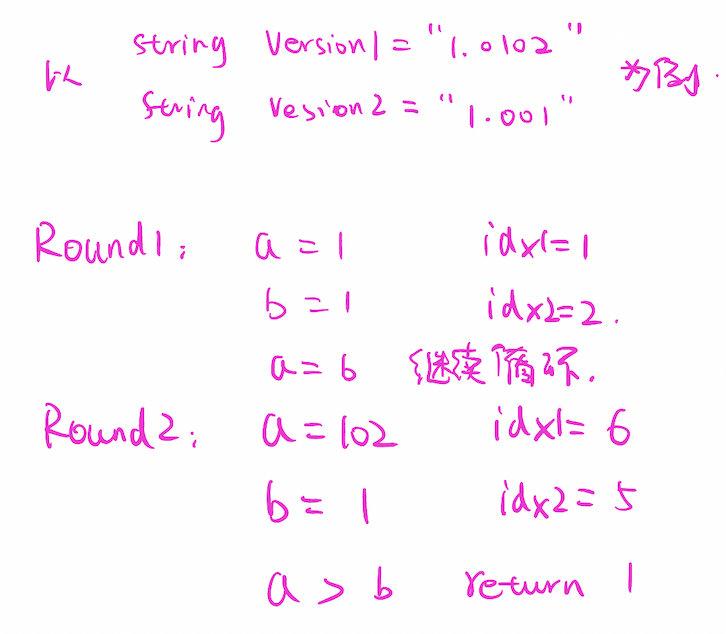 string Version1 = "1.0102"
以 为例.
String Vesion2 = "1.001"
Round1: a = 1 idx1=1
b = 1 idx2=2.
a = b 继续循环.
Round2: a = 102 idx1= 6
b = 1 idx2 = 5
a > b return 1